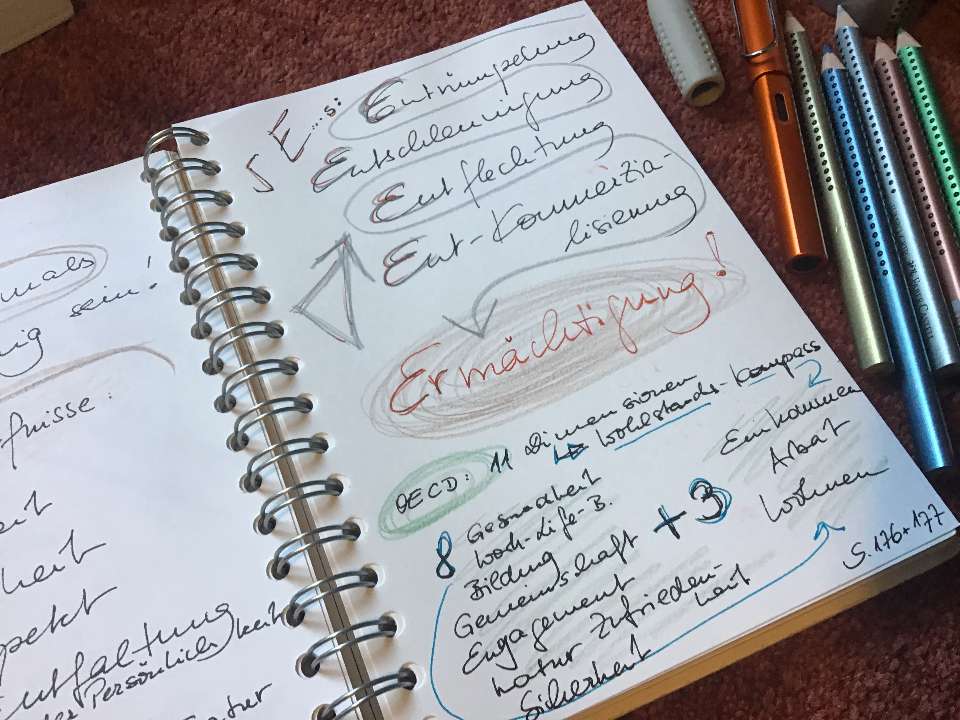 mals
sein!
fnisse:
eit
heit
pekt
Entfaltung
der Persönlichkeit
atur
5 E...s:
Entrümpelung
Entschleunigung
Entflechtung
Ent-Kommerzia-
lisierung
Ermächtigung!
OECD: 11 Dimensionen
↳ Wohlstands-Kompass
8 Gesundheit
Work-Life-B.
Bildung
Gemeinschaft
Engagement
Natur Zufrieden-
heit
Sicherheit
+3
Einkommen
Arbeit
Wohnen
S. 176+177